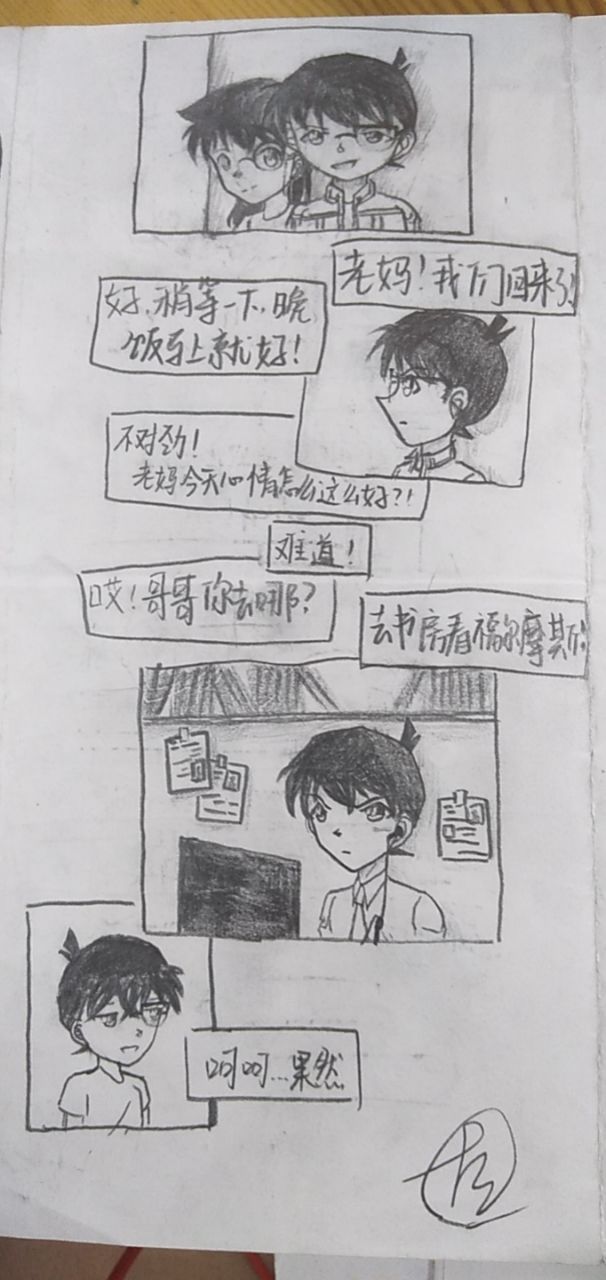 老妈！我们回来了！
好，稍等一下，晚
饭马上就好！
不对劲！
老妈今天心情怎么这么好？！
难道！
哎！哥哥你去哪？
去书房看福尔摩斯！
呵呵…果然